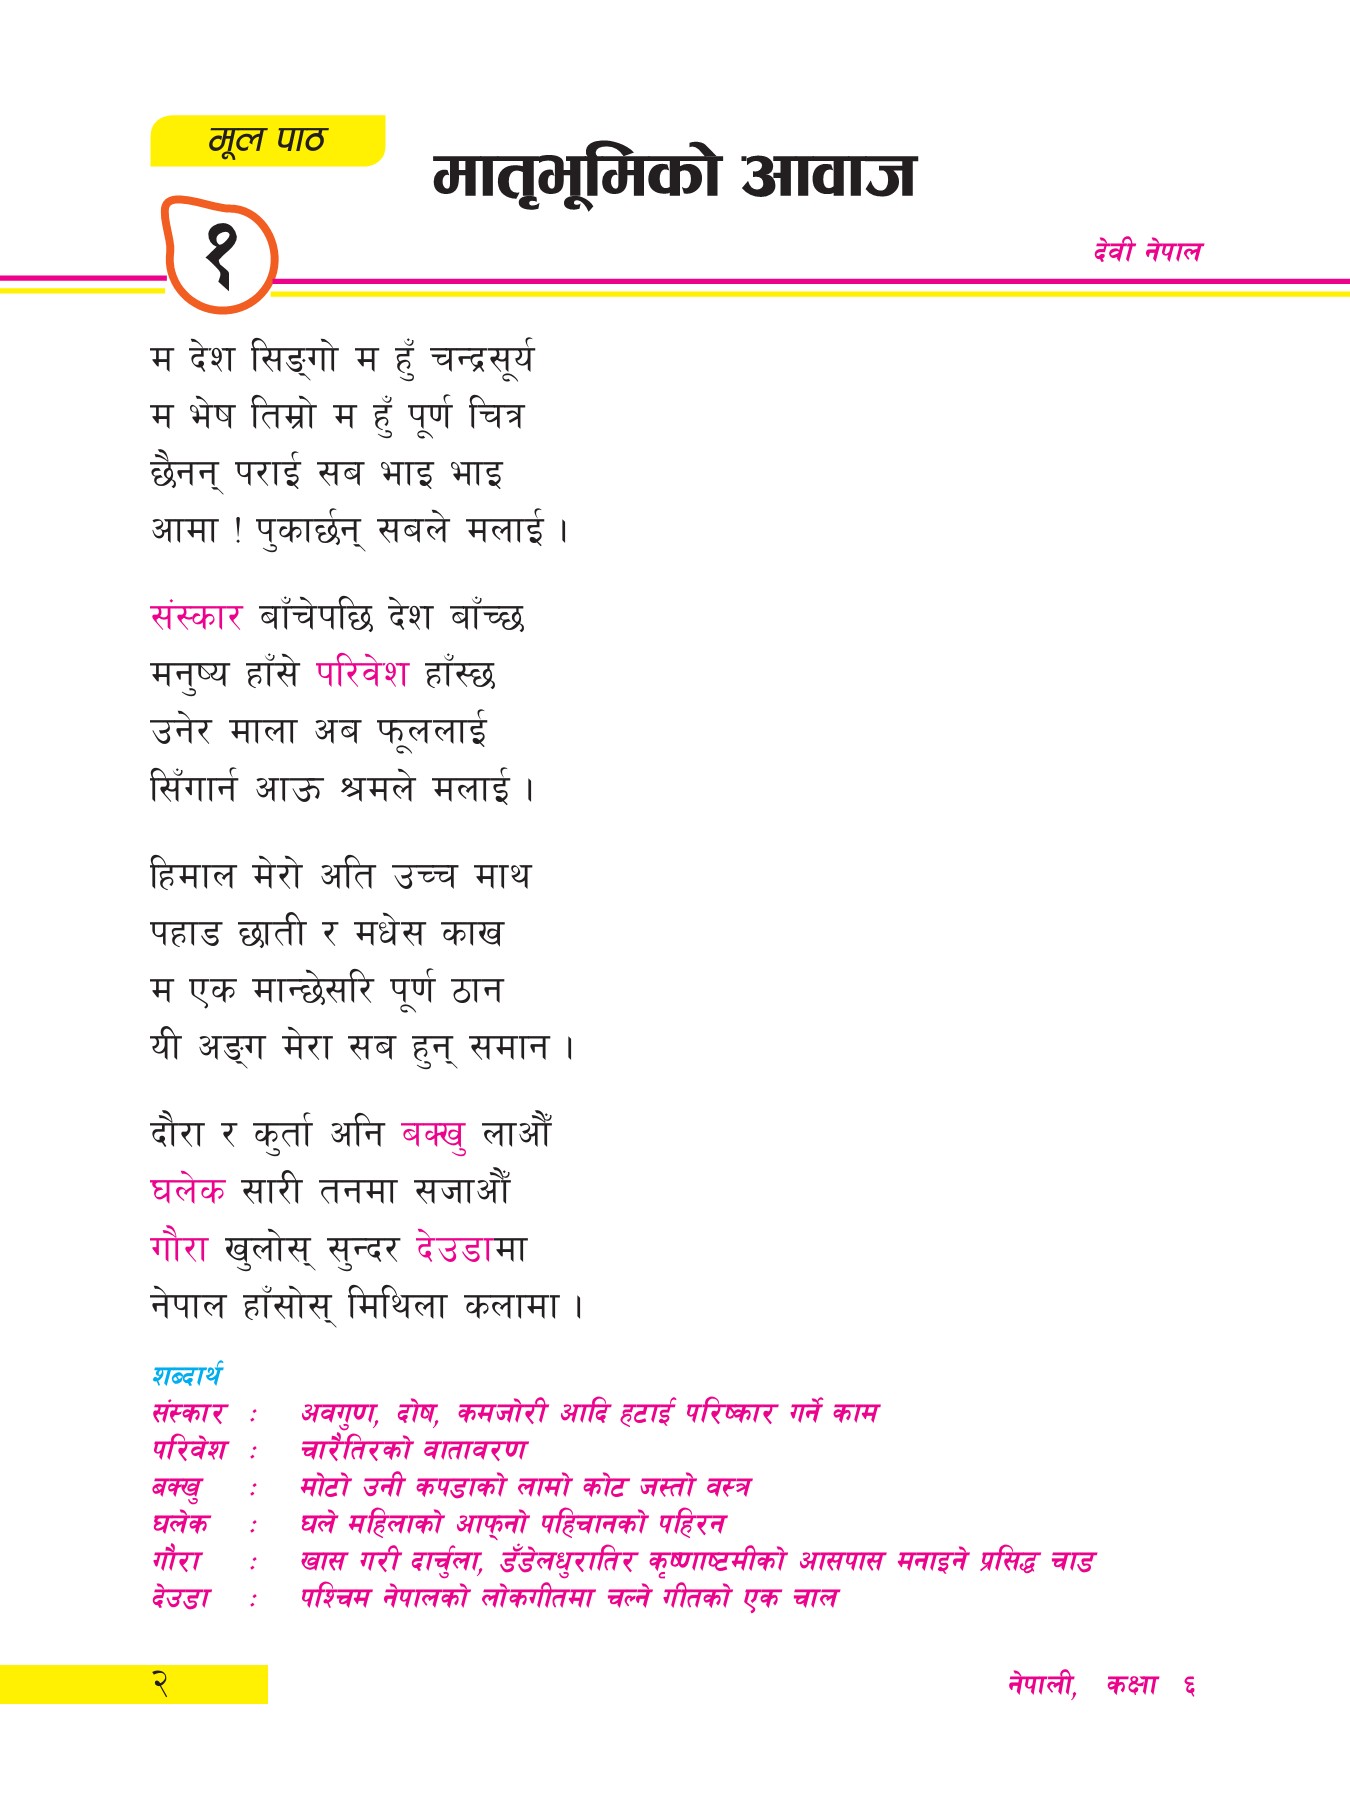 मूल पाठ
मातृभूमिको आवाज
१
देवी नेपाल
म देश सिङ्गो म हुँ चन्द्रसूर्य
म भेष तिम्रो म हुँ पूर्ण चित्र
छैनन् पराई सब भाइ भाइ
आमा ! पुकार्छन् सबले मलाई ।
संस्कार बाँचेपछि देश बाँच्छ
मनुष्य हाँसे परिवेश हाँस्छ
उनेर माला अब फूललाई
सिँगार्न आऊ श्रमले मलाई ।
हिमाल मेरो अति उच्च माथ
पहाड छाती र मधेस काख
म एक मान्छेसरि पूर्ण ठान
यी अङ्ग मेरा सब हुन् समान ।
दौरा र कुर्ता अनि बक्खु लाऔँ
घलेक सारी तनमा सजाऔँ
गौरा खुलोस् सुन्दर देउडामा
नेपाल हाँसोस् मिथिला कलामा ।
शब्दार्थ
संस्कार : अवगुण, दोष, कमजोरी आदि हटाई परिष्कार गर्ने काम
परिवेश : चारैतिरको वातावरण
बक्खु : मोटो उनी कपडाको लामो कोट जस्तो वस्त्र
घलेक : घले महिलाको आफ्नो पहिचानको पहिरन
गौरा : खास गरी दार्चुला, डँडेलधुरातिर कृष्णाष्टमीको आसपास मनाइने प्रसिद्ध चाड
देउडा : पश्चिम नेपालको लोकगीतमा चल्ने गीतको एक चाल
२
नेपाली, कक्षा ६